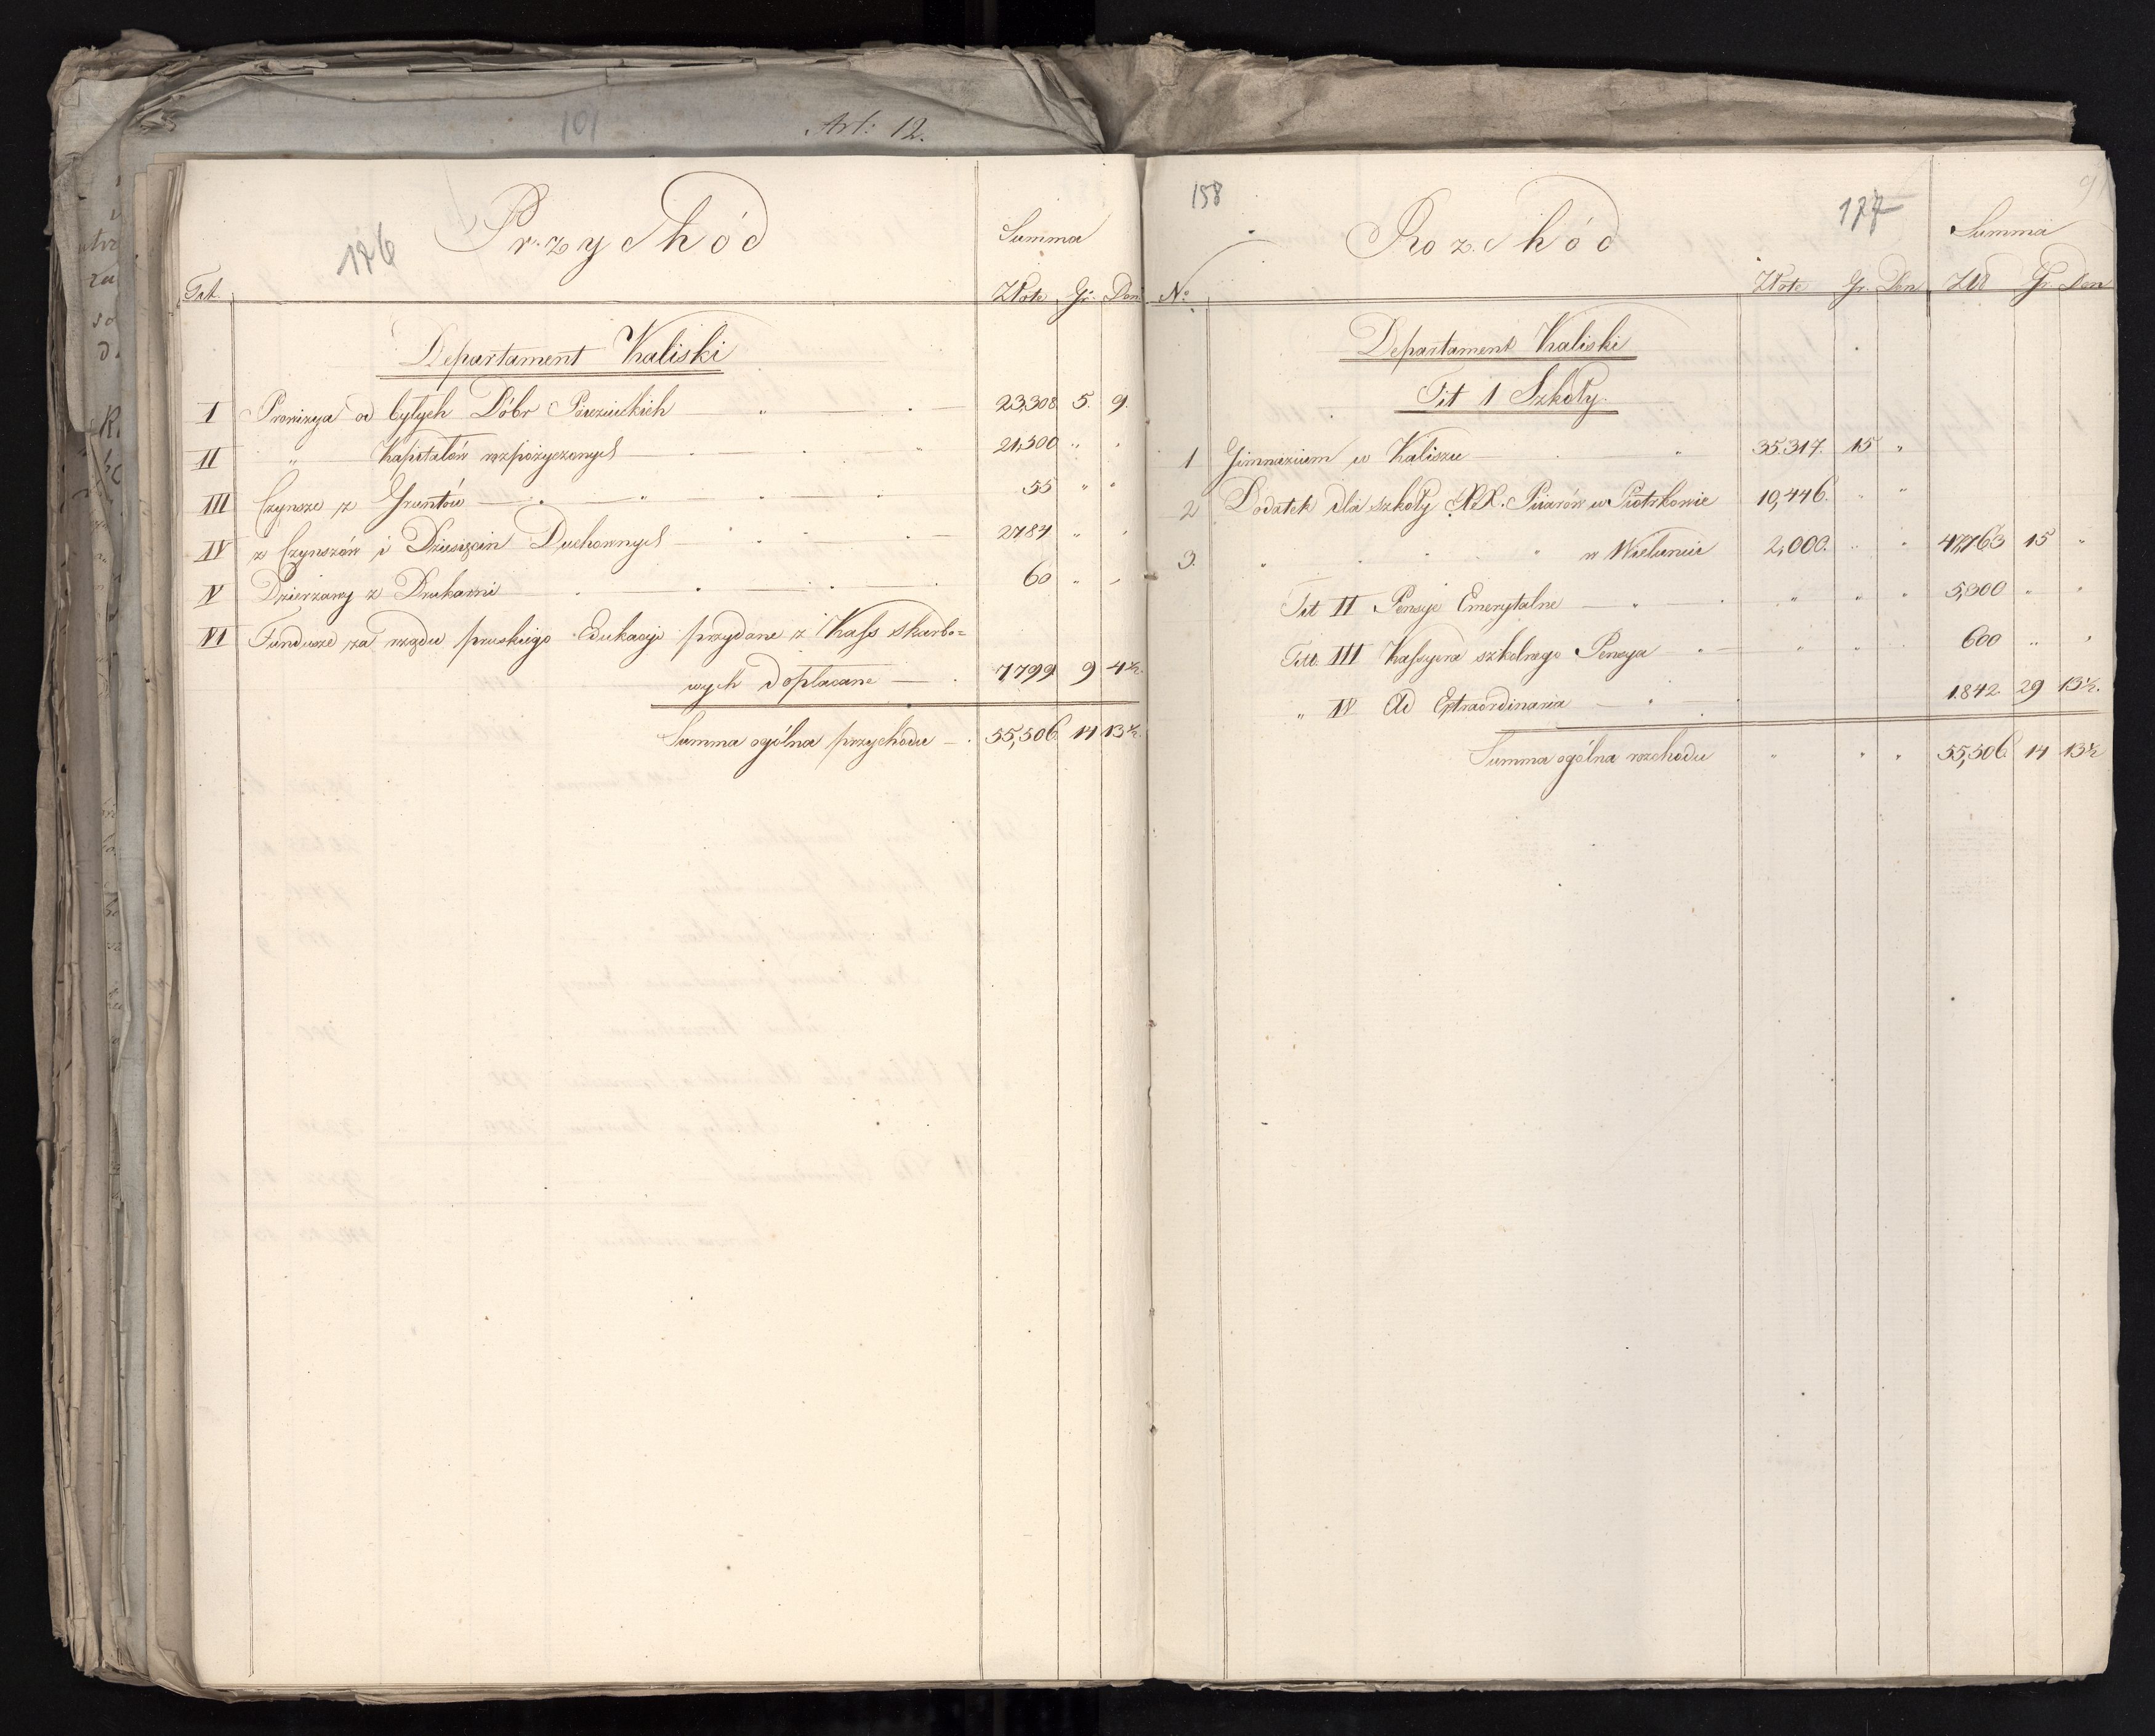 101
Art: 12.
176
Przychód
Summa
Tit. Złote Gr. Den
Departament Kaliski
I Prowizya od byłych Dóbr Pojezuickich „ 23,308. 5. 9.
II „ Kapitałów rozpożyczonych 21,500 „ „
III Czynsze z Gruntów „ 55 „ „
IV z Czynszów i Dziesięcin Duchownych 2784 „ „
V Dzierżawy z Drukarni 60 „ „
VI Fundusze za rządu pruskiego Edukacyi przydane z Kass skarbo=
wych dopłacane 7,799 9 4½.
Summa ogólna przychodu 55,506. 14 13½.
158
177
91
Rozchód
Summa
No Złote Gr. Den Złł Gr Den
Departament Kaliski
Tit 1 Szkoły.
1 Gimnazium w Kaliszu „ 35.317. 15 „
2 Dodatek dla szkoły XX. Piiarów w Piotrkowie 10,446. „ „
3. „ „ w Wieluniu 2,000. „ „ 47,763 15 „
Tit II Pensye Emerytalne „ „ „ „ 5,300 „ „
Tit. III Kassyera szkolnego Pensya „ „ „ 600 „ „
„ IV Ad Extraordinaria 1.842. 29 13½.
Summa ogólna rozchodu „ „ „ 55,506 14 13½